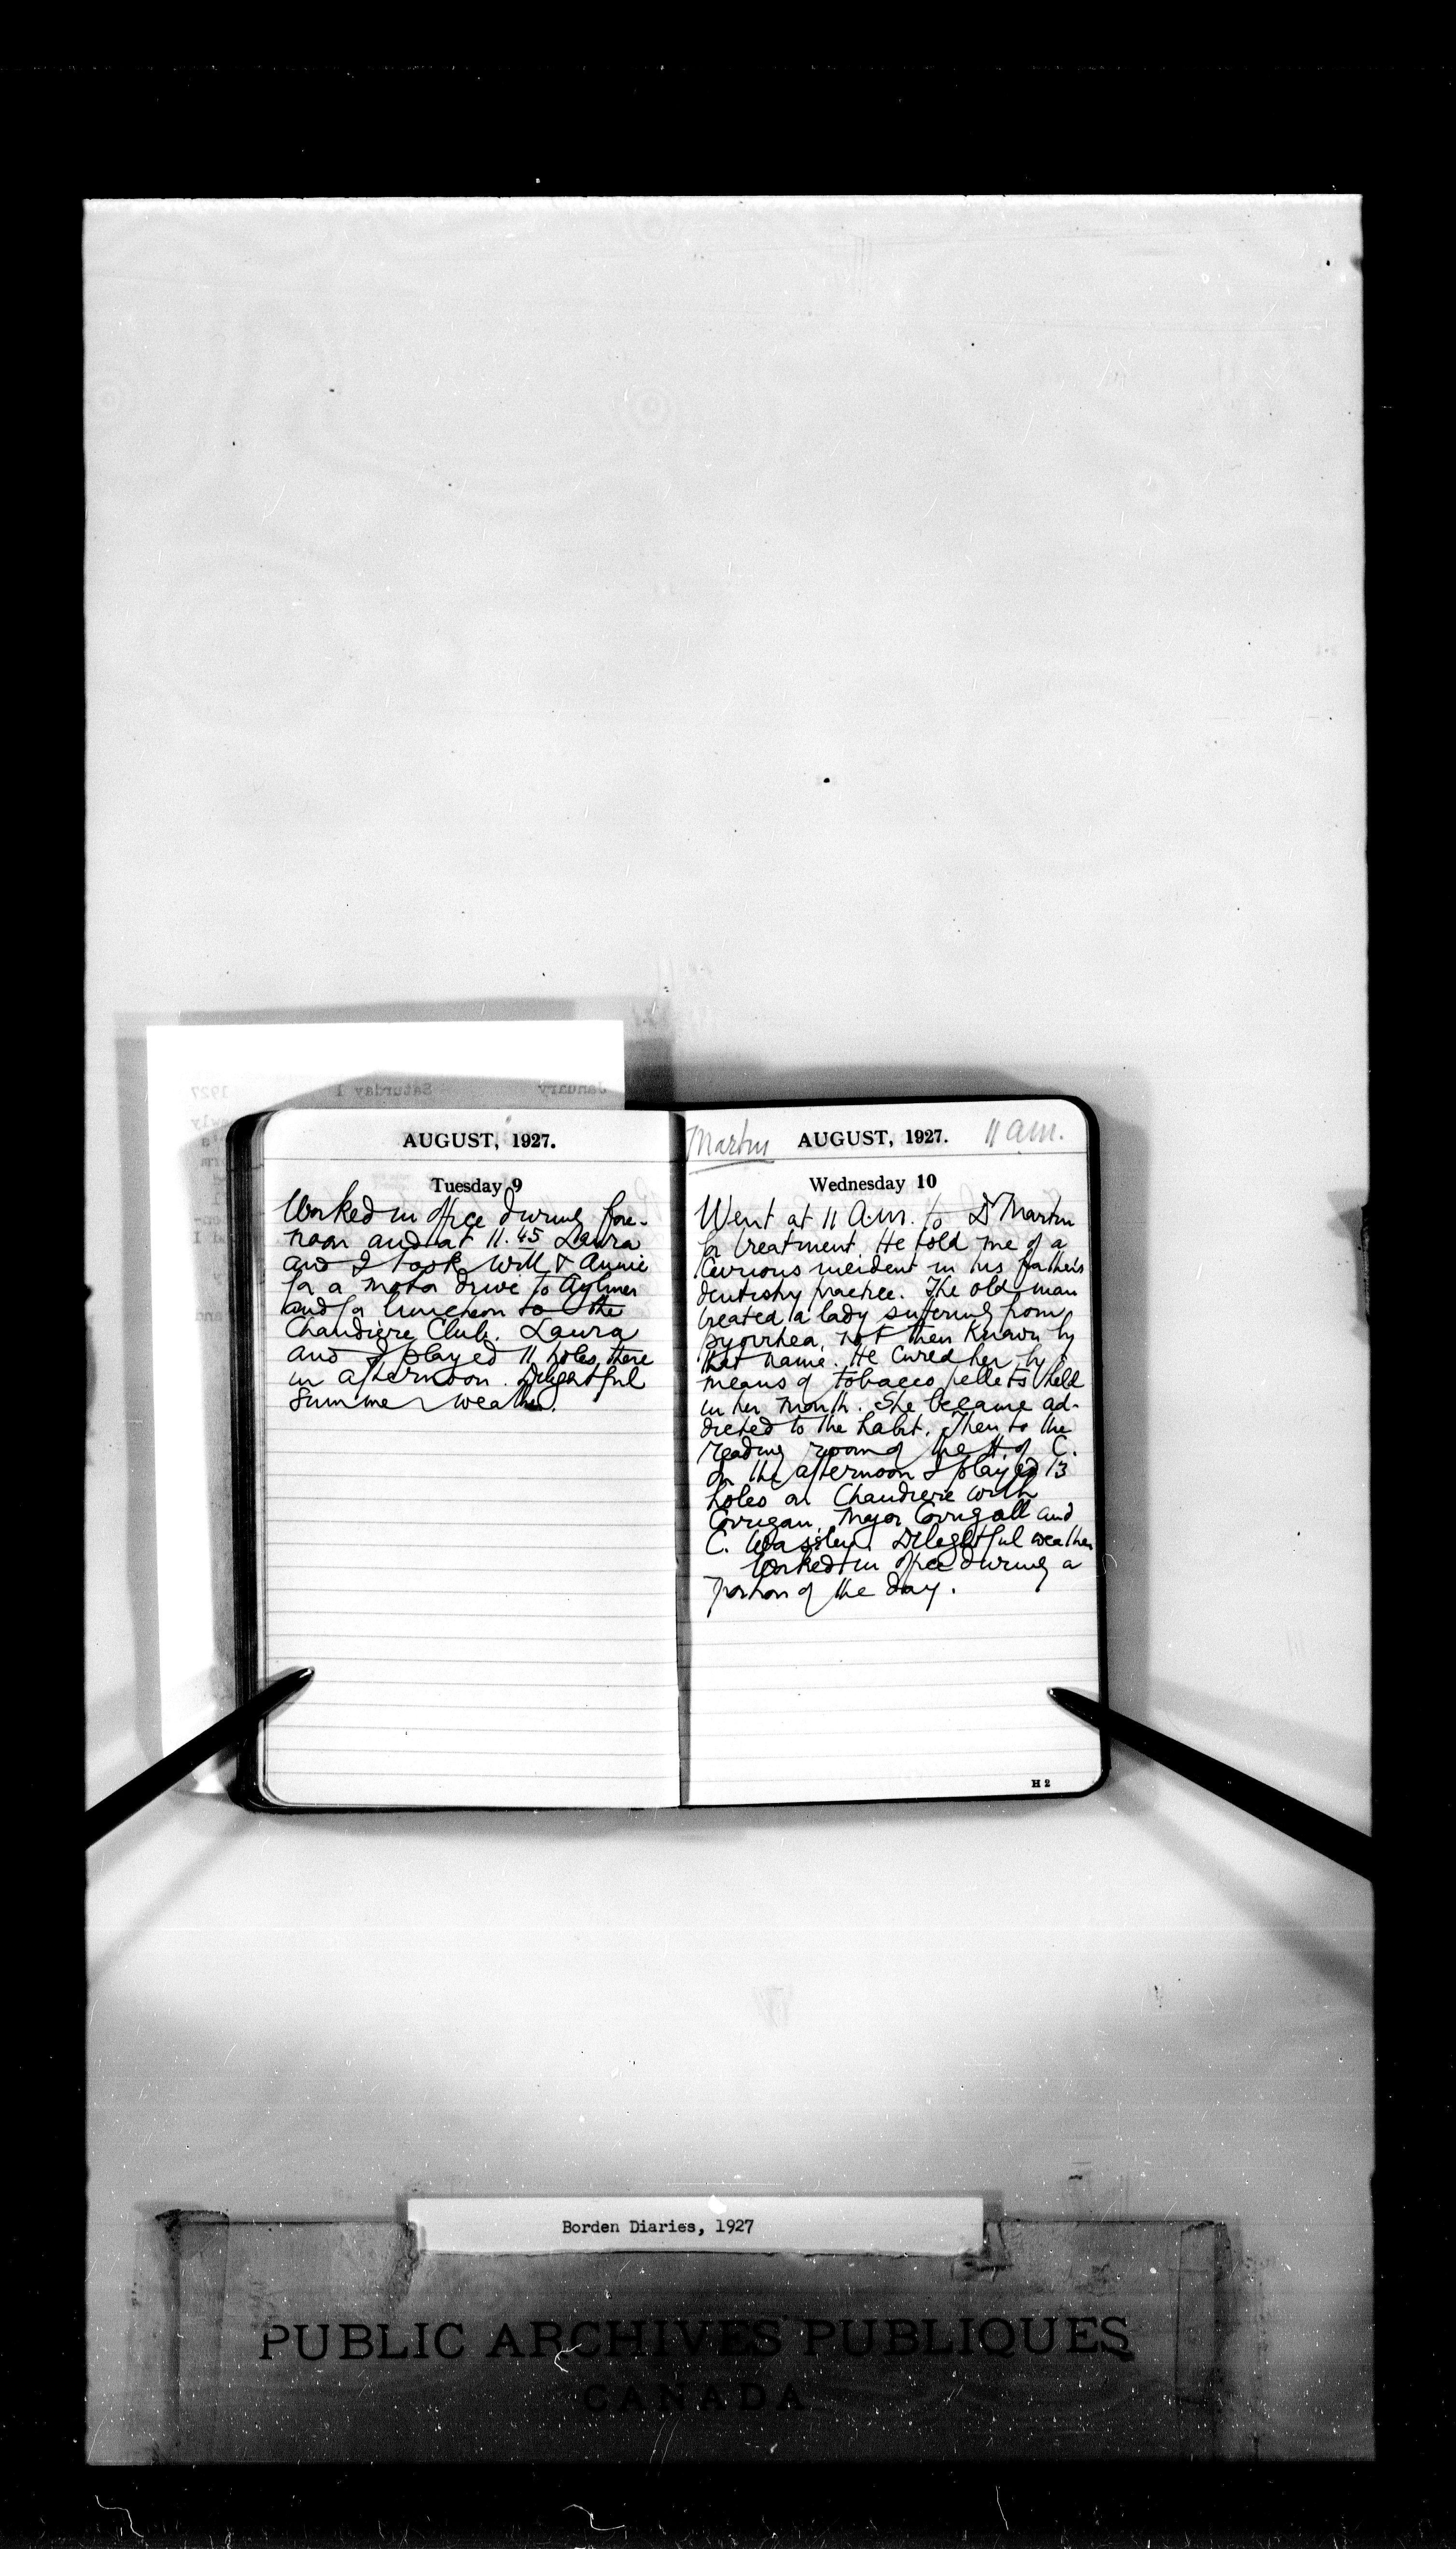 AUGUST, 1927.
Tuesday 9
Worked in office during fore-
noon and at 11.45 Laura
and I took Will & Annie
for a motor drive to Aylmer
and for luncheon to the
Chaudière Club. Laura
and I played 11 holes there
in afternoon. Delightful
summer weather.
Martin AUGUST, 1927. 11 a.m.
Wednesday 10
Went at 11 A.m. to Dr Martin
for treatment. He told me of a
curious incident in his father's
dentistry practice. The old man
treated a lady suffering from
pyorrhea, not then known by
that name. He cured her by
means of tobacco pellets held
in her mouth. She became ad-
dicted to the habit. Then to the
reading room of the H. of C.
In the afternoon I played 13
holes on Chaudiere with
Corrigan, Major Corrigall and
C. Delightful weather
Worked in office during a
portion of the day.
H 2
Borden Diaries, 1927
PUBLIC ARCHIVES PUBLIQUES
CANADA